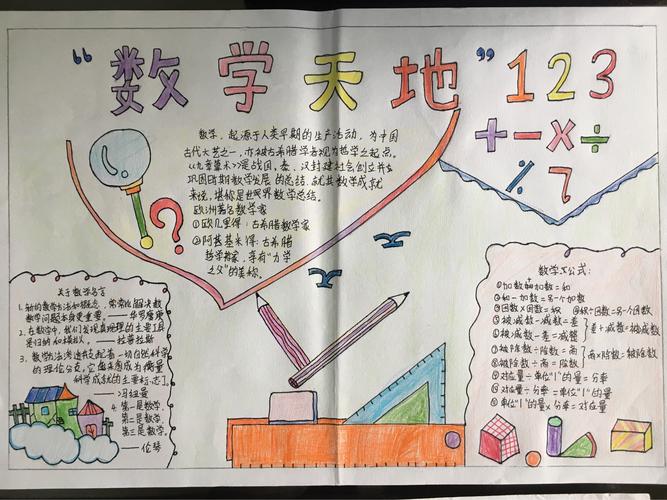 “数学天地”
1 2 3
+ - × ÷
数学,起源于人类早期的生产活动,为中国
古代六艺之一,亦被古希腊学者视为哲学之起点。
《九章算术》是战国、秦、汉封建社会创立并
巩固时期数学发展的总结,就其数学成就
来说,堪称是世界数学总结。
欧洲著名数学家
①欧几里得:古希腊数学家
②阿基米得:古希腊
哲学家,享有“力学
之父”的美称。
关于数学名言
1、新的数学方法和概念,常常比解决数
数学问题本身更重要。——华罗庚
2、在数学中,我们发现真理的主要工具
是归纳和模拟。——拉普拉斯
3、数学方法渗透并支配着一切自然科学
的理论分支,它愈来愈成为衡量
科学成就的主要标志了。
——冯纽曼
4、第一是数学,
第二是数学,
第三是数学。
——伦琴
数学公式:
①加数+加数=和
②和-加数=另一个加数
③因数×因数=积 ④积÷因数=另一个因数
⑤被减数-减数=差
⑥被减数-差=减数
差+减数=被减数
⑦被除数÷除数=商
⑧被除数÷商=除数
商×除数=被除数
对应量÷单位“1”的量=分率
对应量÷分率=单位“1”的量
单位“1”的量×分率=对应量